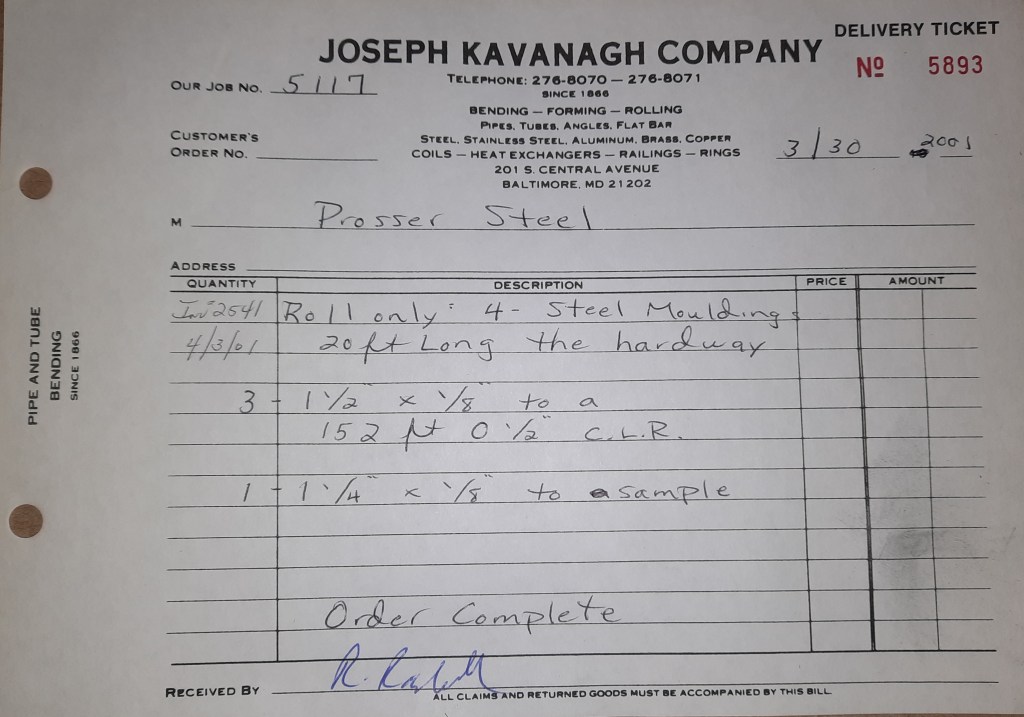 DELIVERY TICKET
JOSEPH KAVANAGH COMPANY
Nº 5893
OUR JOB NO. 5117
TELEPHONE: 276-8070 — 276-8071
SINCE 1866
BENDING — FORMING — ROLLING
PIPES, TUBES, ANGLES, FLAT BAR
CUSTOMER'S ORDER NO.
STEEL, STAINLESS STEEL, ALUMINUM, BRASS, COPPER
COILS — HEAT EXCHANGERS — RAILINGS — RINGS
3/30 2001
201 S. CENTRAL AVENUE
BALTIMORE, MD 21202
M Prosser Steel
ADDRESS
QUANTITY DESCRIPTION PRICE AMOUNT
Inv# 2541 Roll only: 4 - Steel Mouldings
4/3/01 20ft Long the hardway
3 - 1 1/2 x 1/8" to a
152 ft 0 1/2" C.L.R.
1 - 1 1/4" x 1/8" to a sample
Order Complete
RECEIVED BY R.
ALL CLAIMS AND RETURNED GOODS MUST BE ACCOMPANIED BY THIS BILL
PIPE AND TUBE
BENDING
SINCE 1866